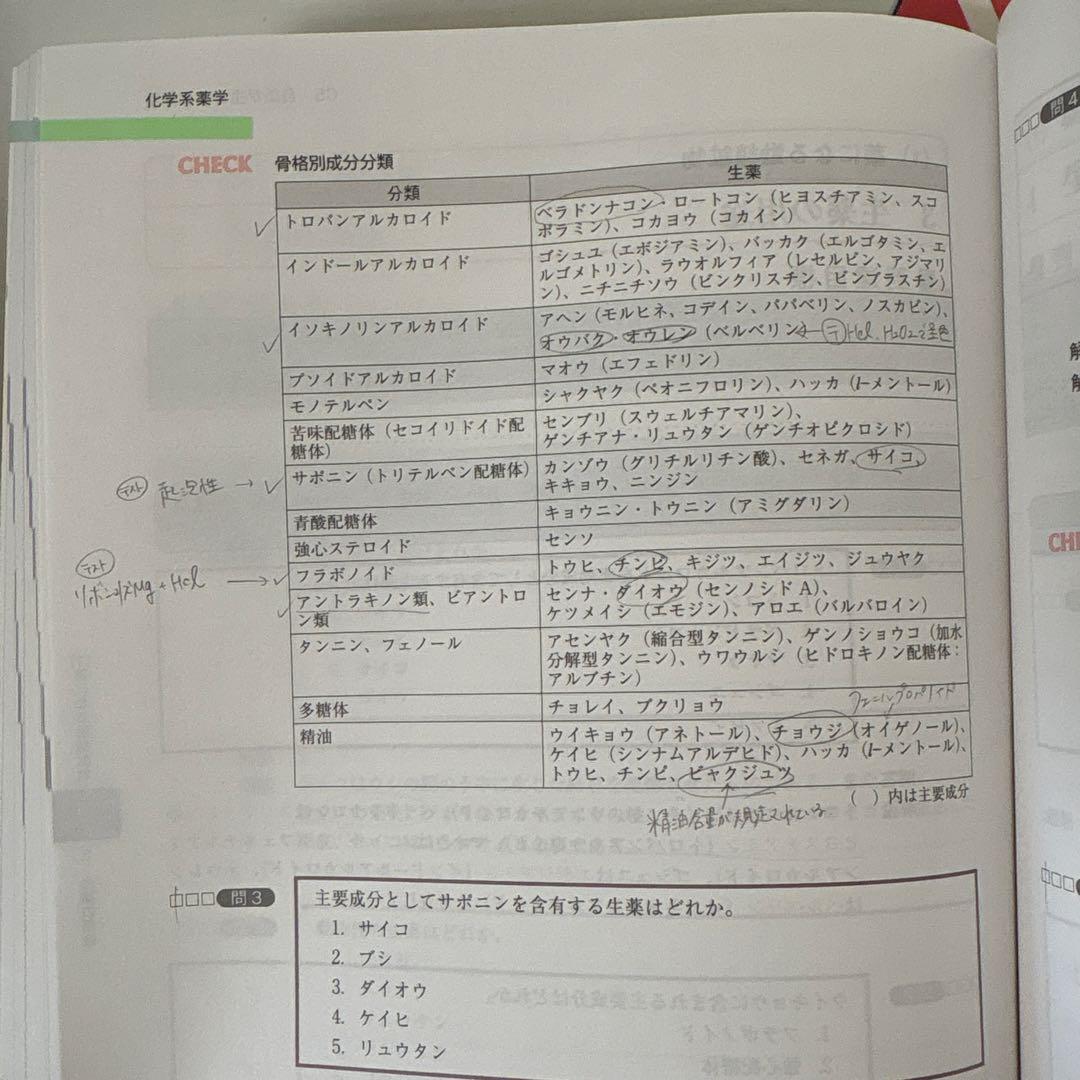 化学系薬学
CHECK 骨格別成分分類
分類 生薬
トロパンアルカロイド
ベラドンナコン・ロートコン（ヒヨスチアミン、スコ
ポラミン）、コカヨウ（コカイン）
インドールアルカロイド
ゴシュユ（エボジアミン）、バッカク（エルゴタミン、エ
ルゴメトリン）、ラウオルフィア（レセルピン、アジマリ
ン）、ニチニチソウ（ビンクリスチン、ビンブラスチン）
イソキノリンアルカロイド
アヘン（モルヒネ、コデイン、パパベリン、ノスカピン）、
オウバク・オウレン（ベルベリン） ← テ HCl、H2O2で
プソイドアルカロイド
マオウ（エフェドリン）
モノテルペン
シャクヤク（ペオニフロリン）、ハッカ（l-メントール）
苦味配糖体（セコイリドイド配
糖体）
センブリ（スウェルチアマリン）、
ゲンチアナ・リュウタン（ゲンチオピクロシド）
テスト 起泡性 →
サポニン（トリテルペン配糖体）
カンゾウ（グリチルリチン酸）、セネガ、サイコ、
キキョウ、ニンジン
青酸配糖体
キョウニン・トウニン（アミグダリン）
強心ステロイド
センソ
テスト
リボン状Mg+HCl →
フラボノイド
トウヒ、チンピ、キジツ、エイジツ、ジュウヤク
アントラキノン類、ビアントロ
ン類
センナ・ダイオウ（センノシド A）、
ケツメイシ（エモジン）、アロエ（バルバロイン）
タンニン、フェノール
アセンヤク（縮合型タンニン）、ゲンノショウコ（加水
分解型タンニン）、ウワウルシ（ヒドロキノン配糖体：
アルブチン）
多糖体
チョレイ、ブクリョウ
フェニルプロパノイド
精油
ウイキョウ（アネトール）、チョウジ（オイゲノール）、
ケイヒ（シンナムアルデヒド）、ハッカ（l-メントール）、
トウヒ、チンピ、ビャクジュツ
（ ）内は主要成分
精油含量が規定されている
問3
主要成分としてサポニンを含有する生薬はどれか。
1. サイコ
2. ブシ
3. ダイオウ
4. ケイヒ
5. リュウタン
問4